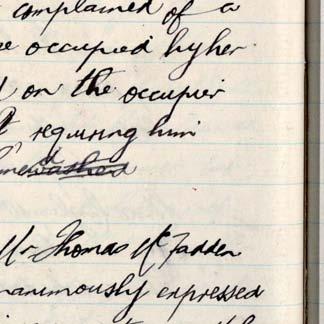 complained of a
occupied by her
on the occupier
requiring him
Mr Thomas McFadden
unanimously expressed